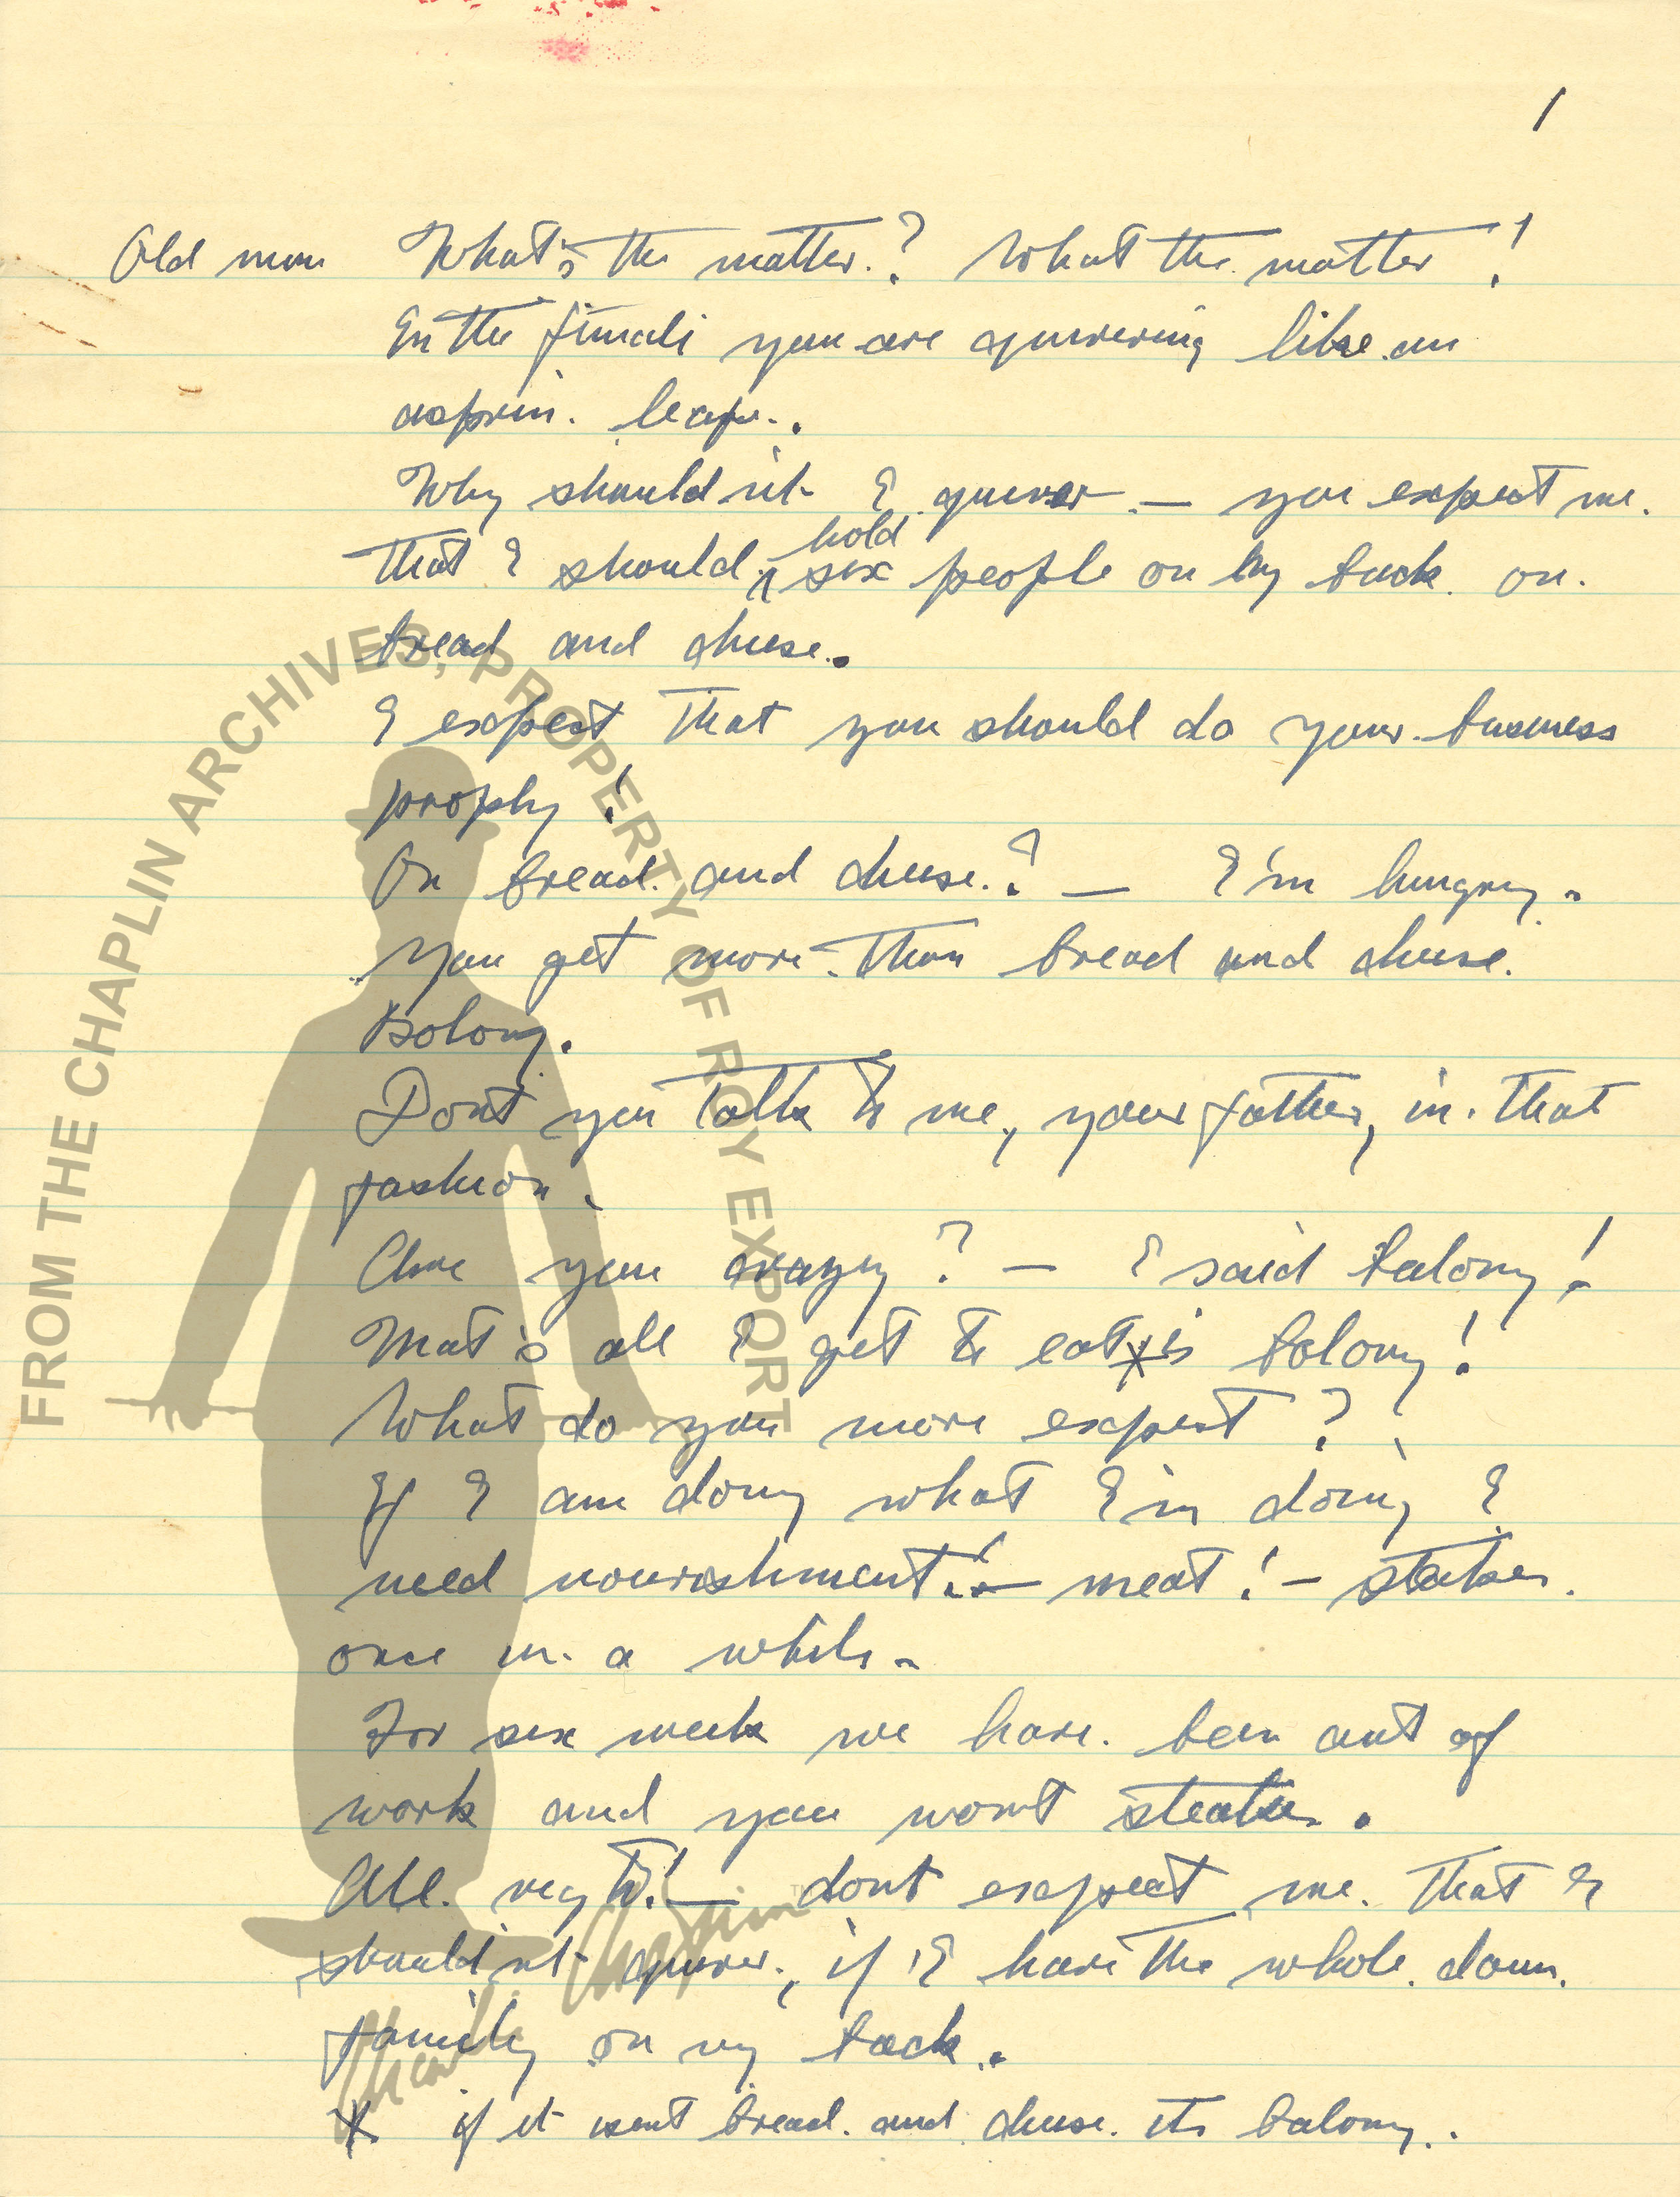 1
Old man What's the matter? What the matter!
In the finali you are quivering like an
asprin leaf.
Why shouldn't I quiver — you expect me
hold
that I should ^ six people on my back on
bread and cheese.
I expect that you should do your business
proply!
On bread and cheese? — I'm hungry.
You get more than bread and cheese.
Bolony.
Dont you talk to me, your father, in that
fashion.
Are you crazy? — I said balony!
That's all I get to eat * is bolony!
What do you more expect?
If I am doing what I'm doing I
need nourishment! — meat! — steaks
once in a while.
For six week we have been out of
work and you want steaks.
All right! — dont expect me that I
shouldnt quiver, if I have the whole damn
family on my back.
* if it isent bread and cheese its balony.
FROM THE CHAPLIN ARCHIVES, PROPERTY OF ROY EXPORT
Charlie Chaplin TM